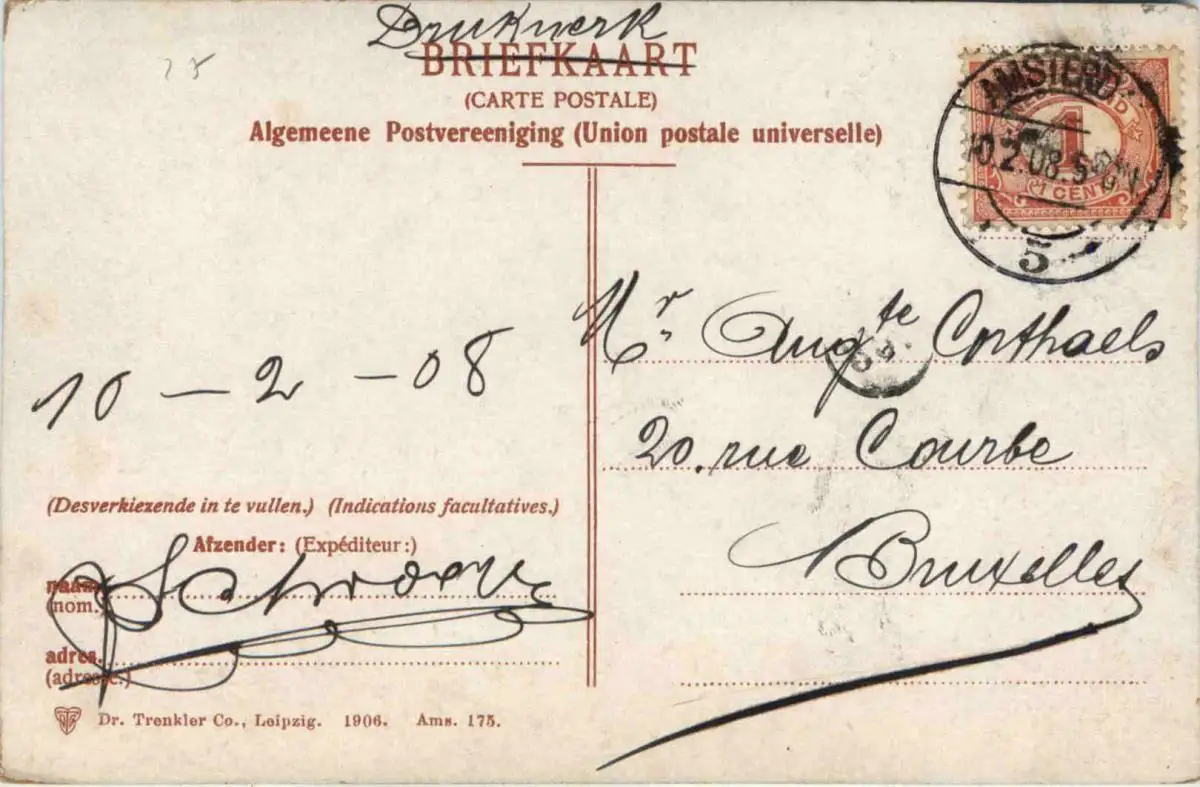 Drukwerk
BRIEFKAART
(CARTE POSTALE)
Algemeene Postvereeniging (Union postale universelle)
25
AMSTERD
10.2.08.5
1
1 CENT
5
Mr Augte Corthaels
20. rue Courbe
Bruxelles
10 - 2 - 08
(Desverkiezende in te vullen.) (Indications facultatives.)
Afzender: (Expéditeur:)
naam
(nom.)
adres.
(adresse.)
Dr. Trenkler Co., Leipzig. 1906. Ams. 175.